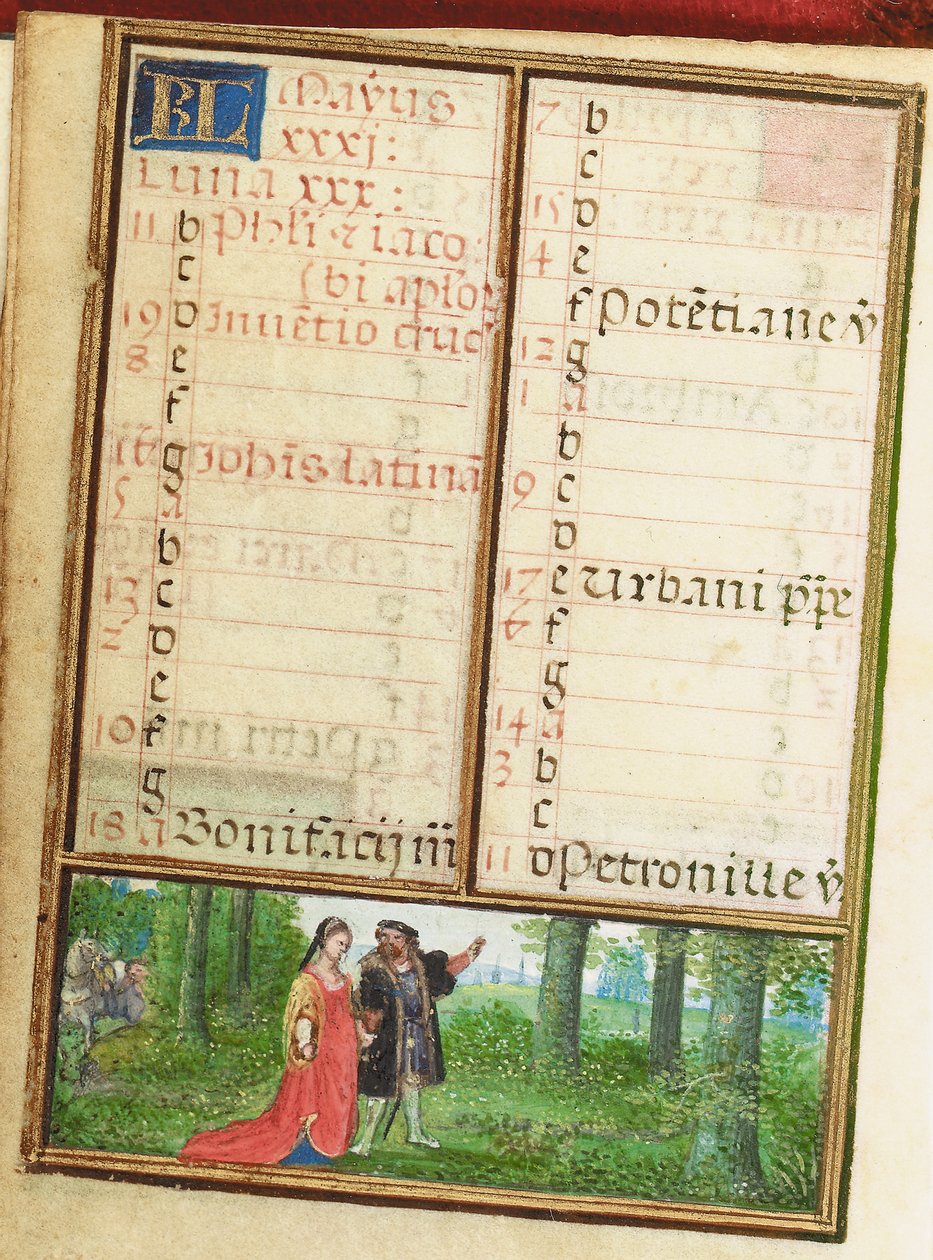 KL Mayus
xxxj:
Luna xxx:
11 b Phli & iaco:
c (bi aplor
19 d Inuētio cruc
8 e
f
g Johīs latinā
5 A
b
13 c
2 d
e
10 f
g
18 A Bonifacij m̄
7 b
c
15 d
4 e
f Potētiane v̄
12 g
1 A
b
9 c
d
17 e Urbani
6 f
g
14 A
3 b
c
11 d Petronille v̄